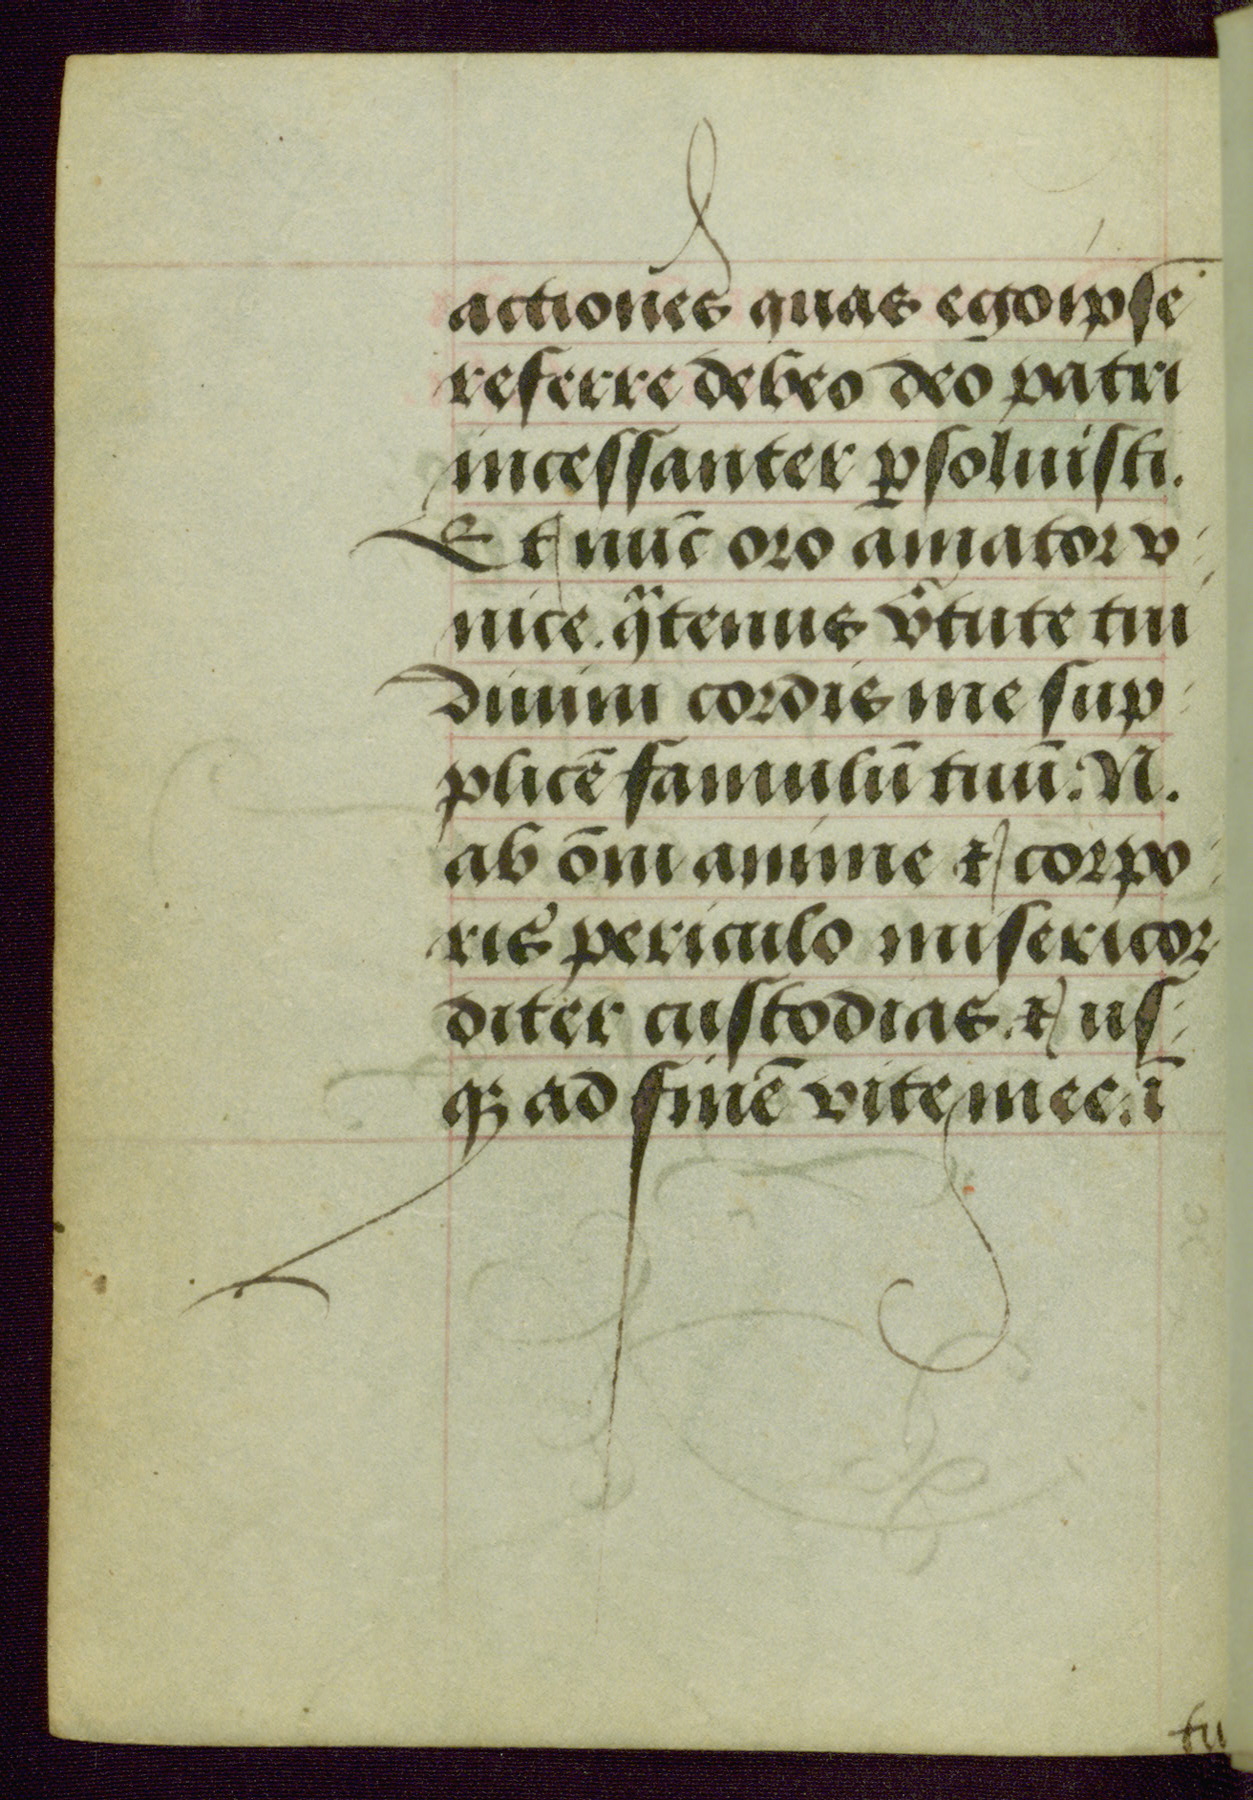 actiones quas ego ipse
referre debeo deō patri
incessanter ꝑsoluisti.
Et nūc oro amator v-
nice. qͣtenus v̄tute tui
diuini cordis me sup-
plicē famulū tuū: N.
ab ōni anime ⁊ corpo-
ris periculo misericor-
diter custodias. ⁊ us-
qꝫ ad finē vite mee: ī
tu